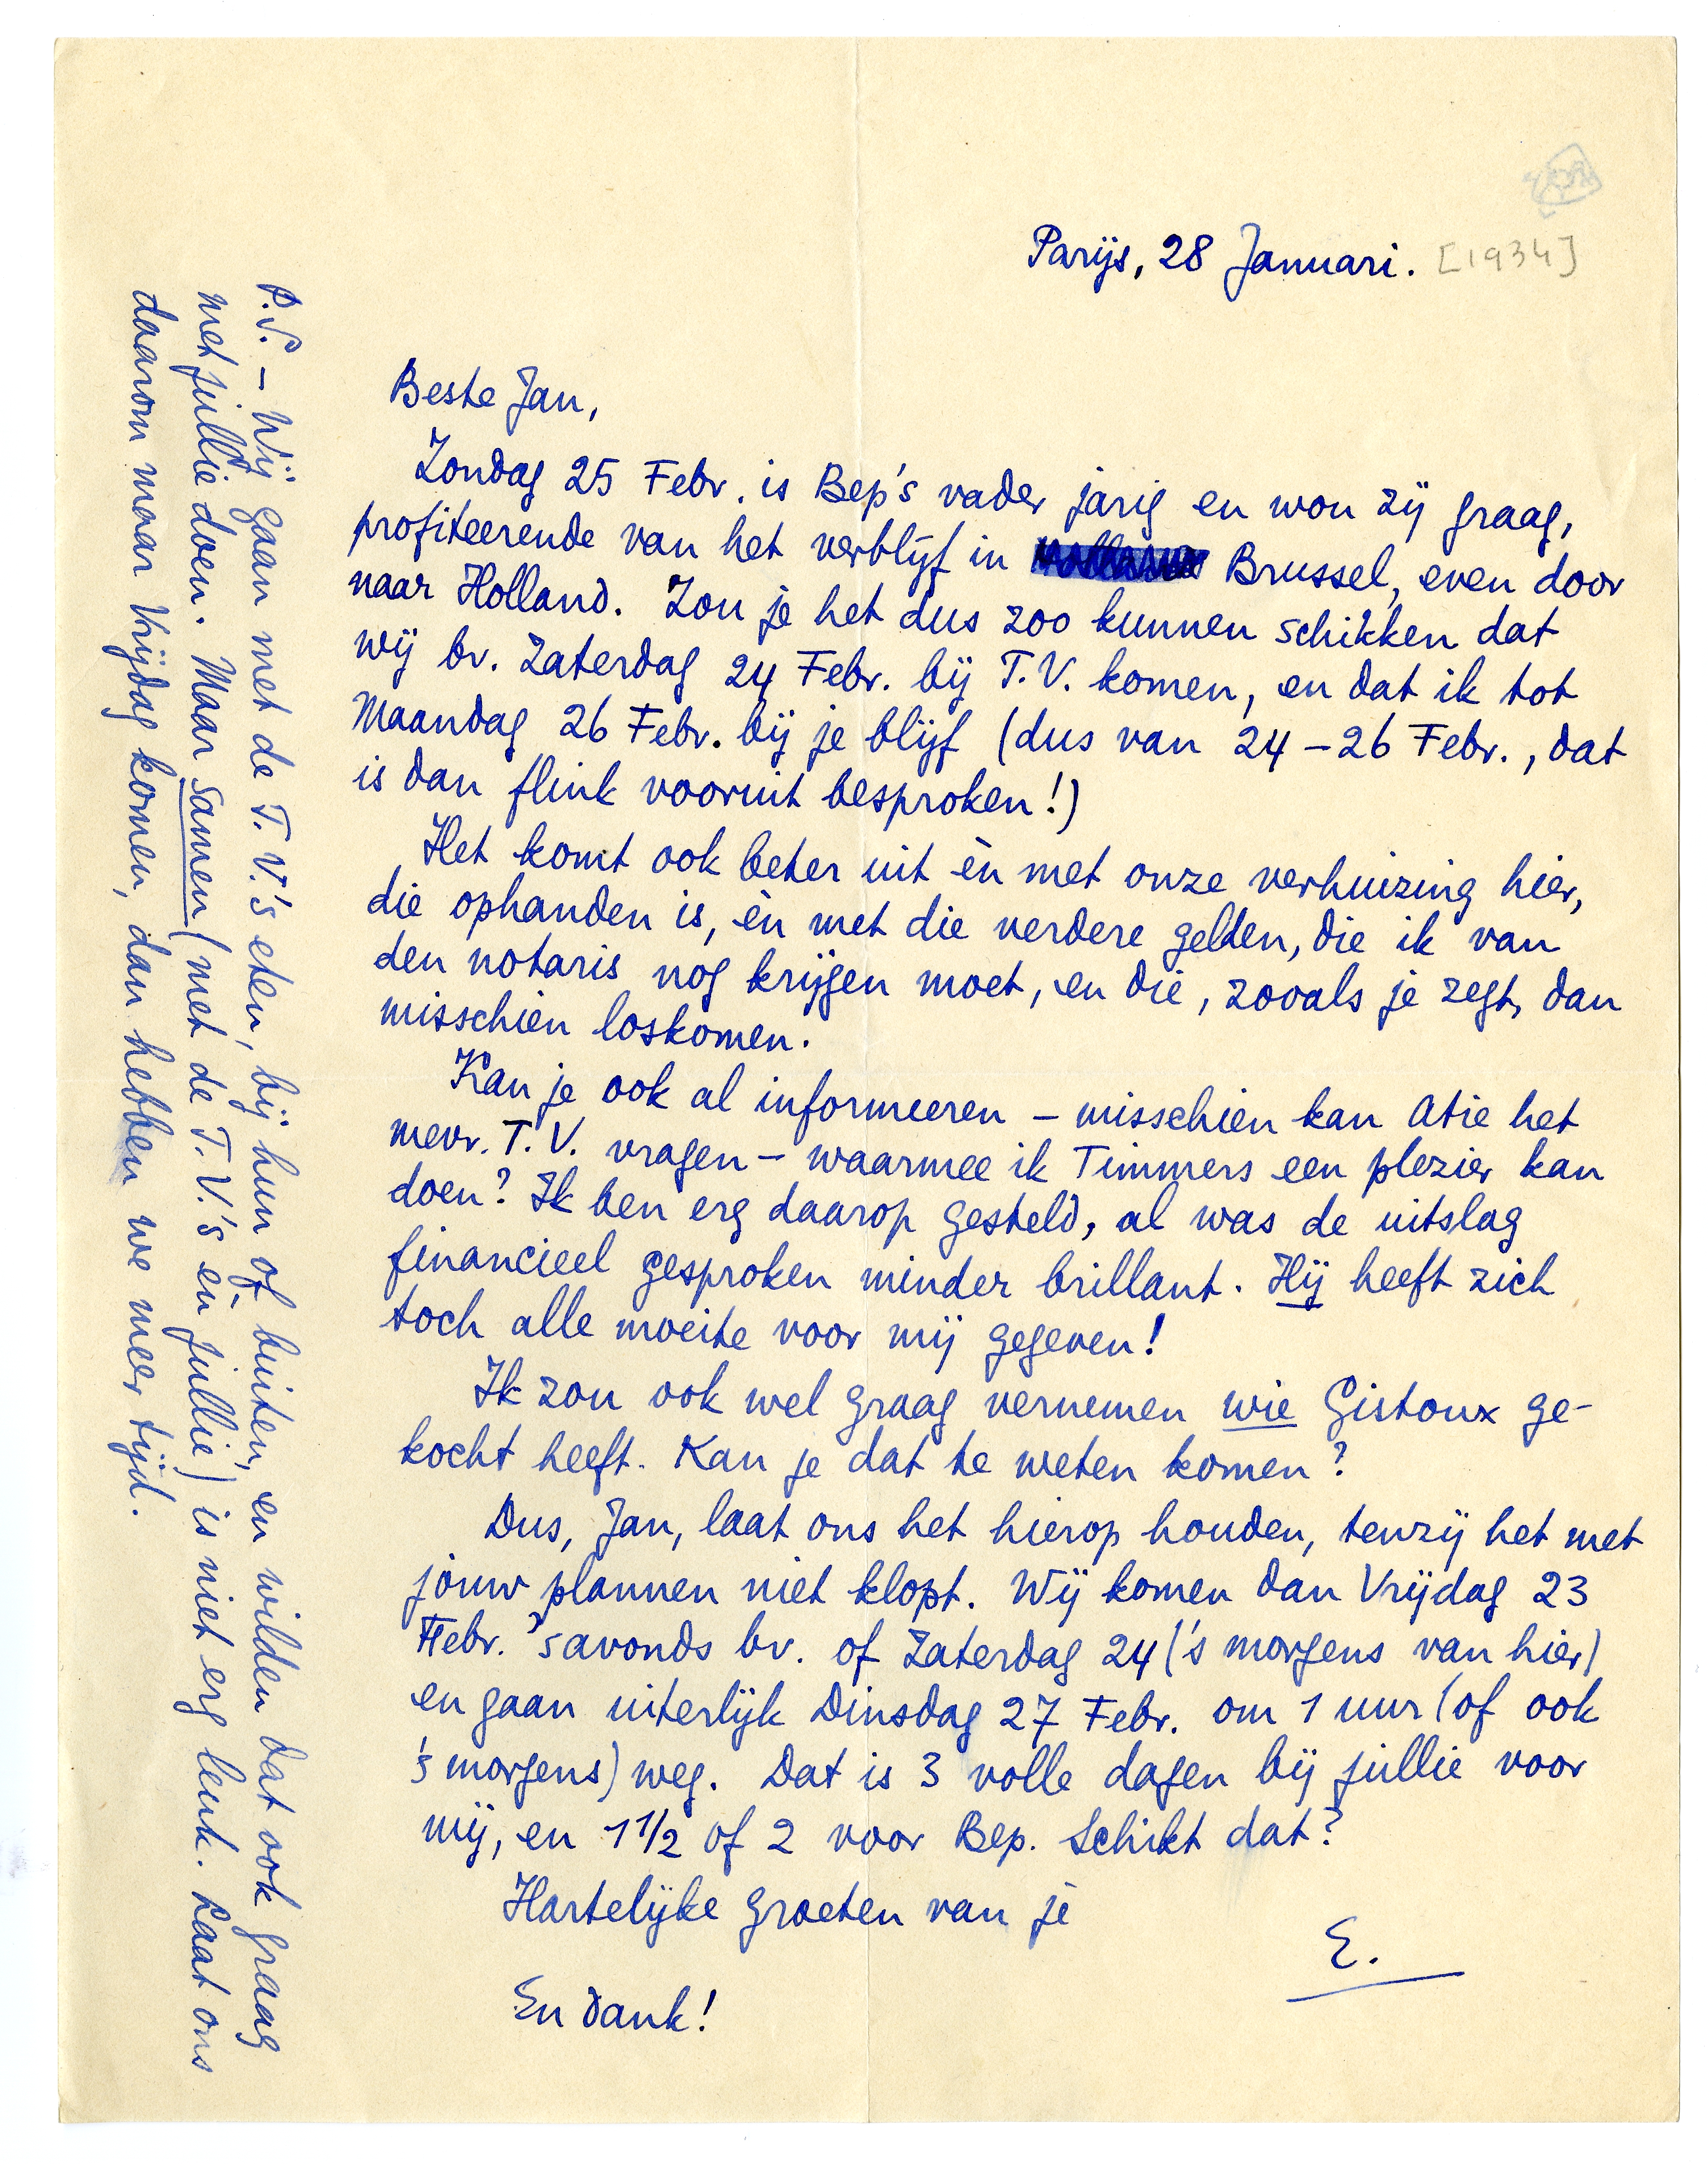 Parijs, 28 Januari. [1934]
Beste Jan,
Zondag 25 Febr. is Bep's vader jarig en wou zij graag,
profiteerende van het verblijf in Brussel, even door
naar Holland. Zou je het dus zoo kunnen schikken dat
wij bv. Zaterdag 24 Febr. bij T.V. komen, en dat ik tot
Maandag 26 Febr. bij je blijf (dus van 24 – 26 Febr., dat
is dan flink vooruit besproken!)
Het komt ook beter uit èn met onze verhuizing hier,
die ophanden is, èn met die verdere gelden, die ik van
den notaris nog krijgen moet, en die, zooals je zegt, dan
misschien loskomen.
Kan je ook al informeeren – misschien kan Atie het
mevr. T.V. vragen – waarmee ik Timmers een plezier kan
doen? Ik ben erg daarop gesteld, al was de uitslag
financieel gesproken minder brillant. Hij heeft zich
toch alle moeite voor mij gegeven!
Ik zou ook wel graag vernemen wie Gistoux ge-
kocht heeft. Kan je dat te weten komen?
Dus, Jan, laat ons het hierop houden, tenzij het met
jouw plannen niet klopt. Wij komen dan Vrijdag 23
Febr. 's avonds bv. of Zaterdag 24 ('s morgens van hier)
en gaan uiterlijk Dinsdag 27 Febr. om 1 uur (of ook
's morgens) weg. Dat is 3 volle dagen bij jullie voor
mij, en 1 1/2 of 2 voor Bep. Schikt dat?
Hartelijke groeten van je
E.
En dank!
P.S. – Wij gaan met de T.V.'s eten, bij hun of buiten, en wilden dat ook graag
met jullie doen. Maar samen (met de T.V.'s èn jullie) is niet erg leuk. Laat ons
daarom maar Vrijdag komen, dan hebben we meer tijd.